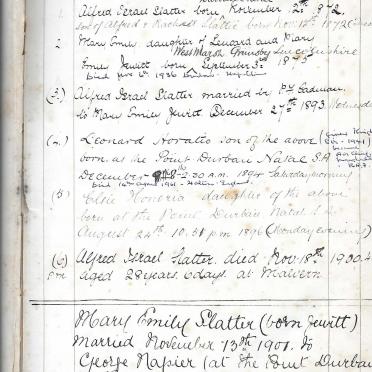 1. Alfred Israel Slatter born November 2nd 1872.
Son of Alfred & Rachael Slatter born Nov 12th 1872
2. Mary Emily daughter of Leonard and Mary
West Marsh Grimsby Lincolnshire
Emily Jewitt born September 3rd 1875
Died 1936
(3.) Alfred Israel Slatter married by
to Mary Emily Jewitt December 27th 1893.
(4.) Leonard Horatio son of the above
born at the Point Durban Natal S.A.
December 2.30 a.m. 1894 Saturday morning
Died April 1961
(5) Elsie Honoria daughter of the above
born at the Point Durban Natal S.A.
August 24th 10.30 pm 1896 (Monday evening)
(6) Alfred Israel Slatter. died Nov. 18th 1900. 4
pm aged 28 years 6 days at Malvern
Mary Emily Slatter (born Jewitt)
Married November 13th 1901. to
George Napier (at the Point Durban